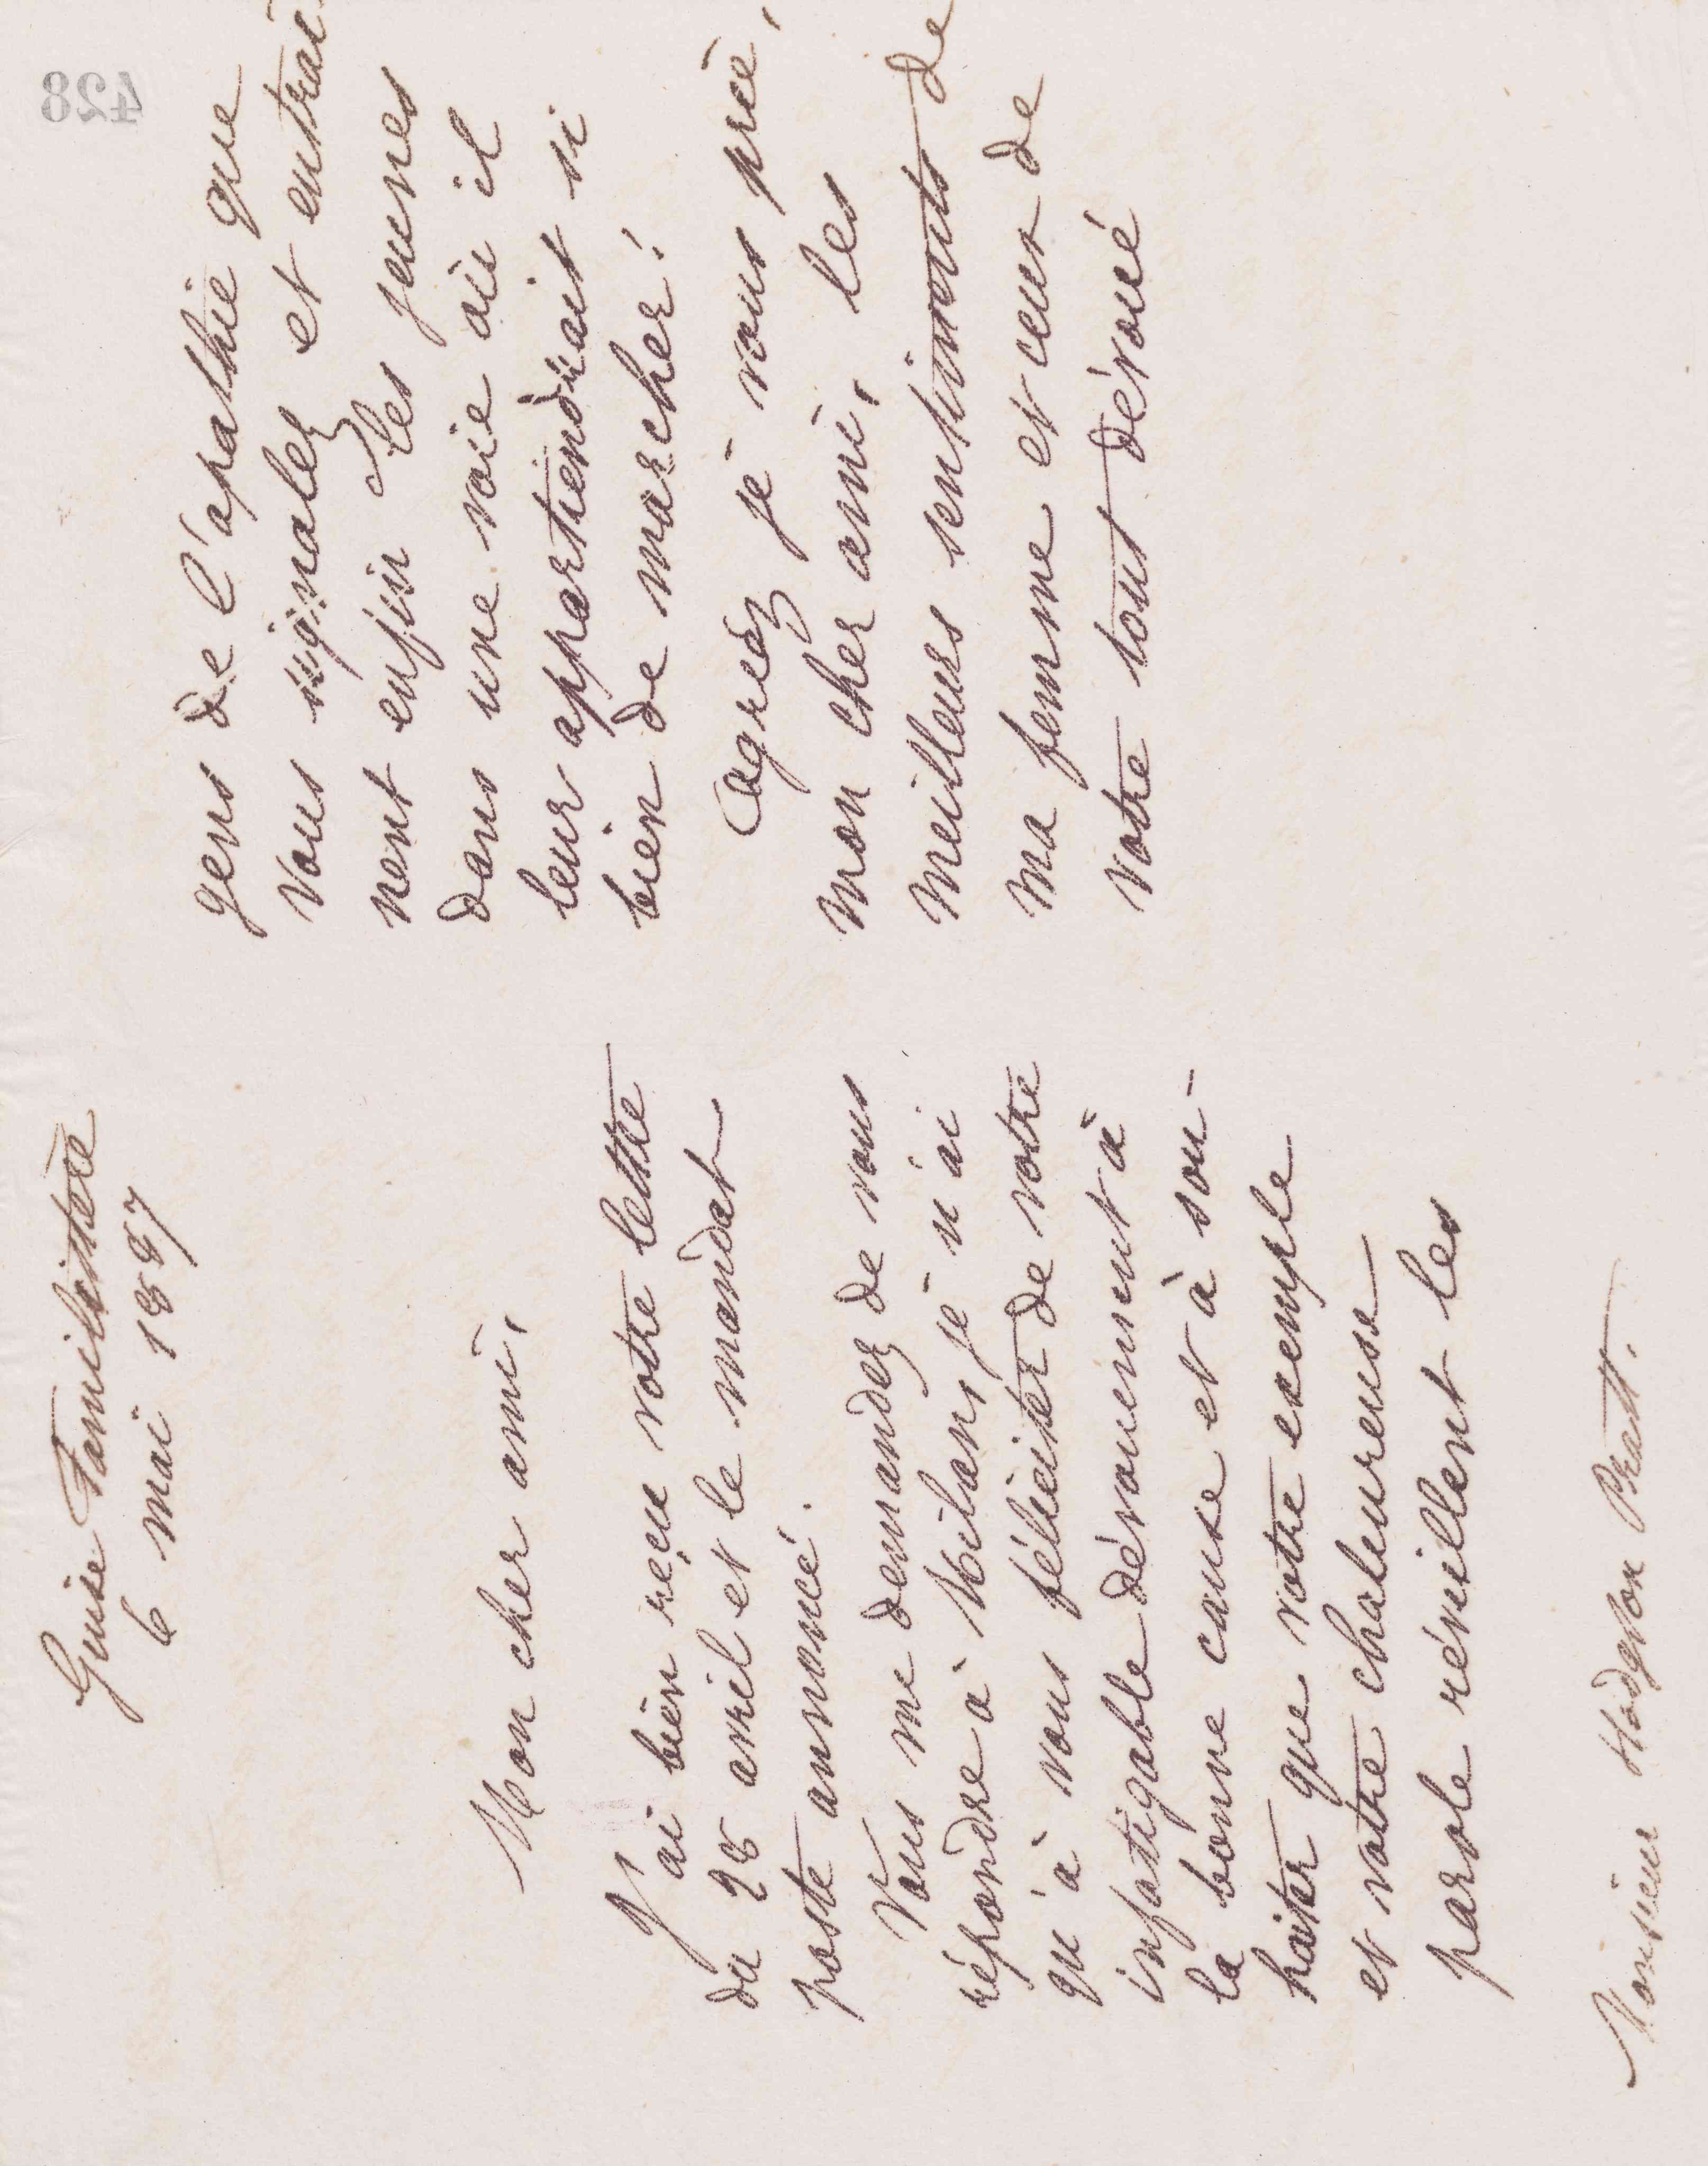 Guise Familistère
6 mai 1887
Mon cher ami,
J'ai bien reçu votre lettre
du 28 avril et le mandat
poste annoncé.
Vous me demandez de vous
répondre à Milan; je n'ai
qu'à vous féliciter de votre
infatigable dévouement à
la bonne cause et à sou-
haiter que votre exemple
et votre chaleureuse
parole réveillent les
Monsieur Hodgson Pratt.
428
gens de l'apathie que
vous signalez et entraî-
nent enfin les jeunes
dans une voie où il
leur appartiendrait si
bien de marcher!
Agréez je vous prie,
mon cher ami, les
meilleurs sentiments de
ma femme et ceux de
votre tout dévoué